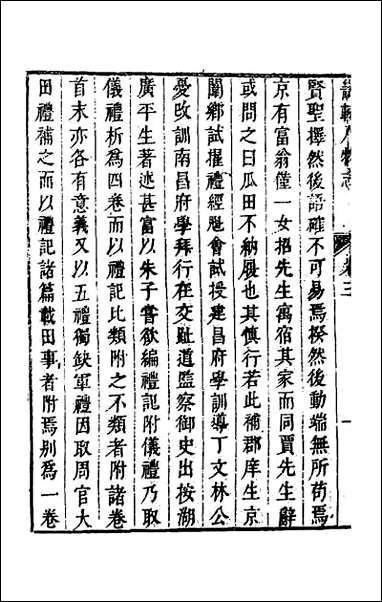 卷三 一
賢聖擇然後語確不可易焉揆然後動端無所苟焉
京有富翁僅一女招先生寓宿其家而同賈先生辭
或問之曰瓜田不納履也其慎行若此補郡庠生京
闈鄉試擢禮經魁會試授建昌府學訓導丁文林公
憂改訓南昌府學拜行在交趾道監察御史出按湖
廣平生著述甚富以朱子嘗欲編禮記附儀禮乃取
儀禮析為四卷而以禮記比類附之不類者附諸卷
首末亦各有意義又以五禮獨缺軍禮因取周官大
田禮補之而以禮記諸篇載田事者附焉別為一卷